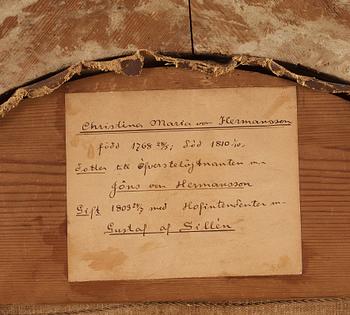 Christina Maria von Hermansson
född 1768 28/5; död 1810
Dotter till Öfverstelöjtnanten m.
Jöns von Hermansson
Gift 1803 med Hofintendenten m.
Gustaf af Sillén